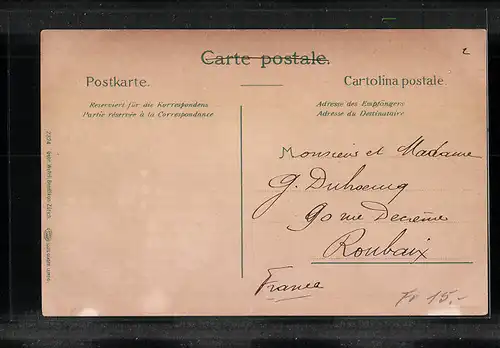 2
Carte postale.
Postkarte.
Cartolina postale.
Reserviert für die Korrespondenz
Partie réservée à la Correspondance
Adresse des Empfängers
Adresse du Destinataire
Monsieur et Madame
G.
90 rue
Roubaix
France
Fr 15.-
7234
Zürich.